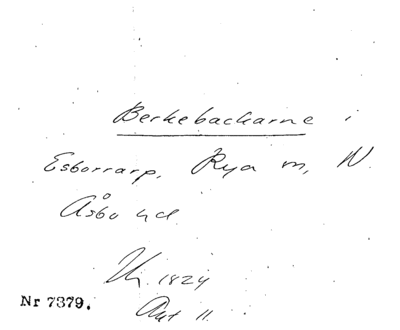 Berkebackarne i
Esborrarp, Rya sn, N.
Åsbo hd.
1824
Nr 7379.
Akt 11.